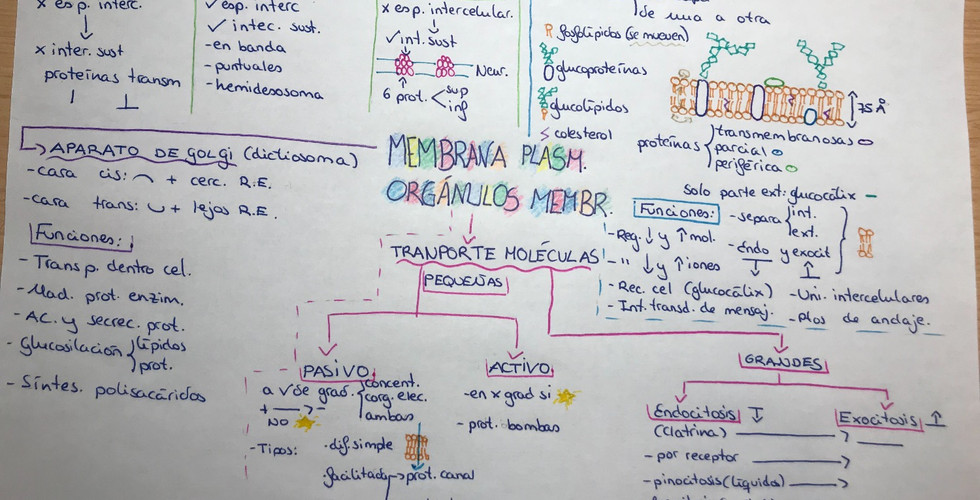 x esp. interc.
x inter. sust
proteínas transm
✓ esp. interc
✓ intec. sust.
- en banda
- puntuales
- hemidesosoma
x esp. intercelular.
✓ int. sust
Neur.
6 prot. < sup
inf
de una a otra
fosfolípidos (se mueven)
glucoproteínas
glucolípidos
colesterol
75 Å
proteínas
transmembranosas
parcial
periférica
solo parte ext: glucocálix -
APARATO DE GOLGI (dictiosoma)
- cara cis: + cerc. R.E.
- cara trans: + lejos R.E.
Funciones:
- Transp. dentro cel.
- Mad. prot. enzim.
- AC. y secrec. prot.
- Glucosilación lípidos
prot.
- Síntes. polisacáridos
MEMBRANA PLASM.
ORGÁNULOS MEMBR.
Funciones:
- separa int.
ext.
- Reg. ↓ y ↑ mol.
- Endo y exocit
- " ↓ y ↑ iones
- Rec. cel (glucocálix)
- Uni. intercelulares
- Int. transd. de mensaj.
- Ptos de andaje.
TRANPORTE MOLÉCULAS
PEQUEÑAS
PASIVO
a v de grad. concent.
corg. elec.
ambas
+ → -
NO
- Tipos: · dif. simple
· facilitada → prot. canal
ACTIVO
- en x grad si
- prot. bombas
GRANDES
Endocitosis ↓
Exocitosis ↑
(clatrina)
- por receptor
- pinocitosis (líquidos)